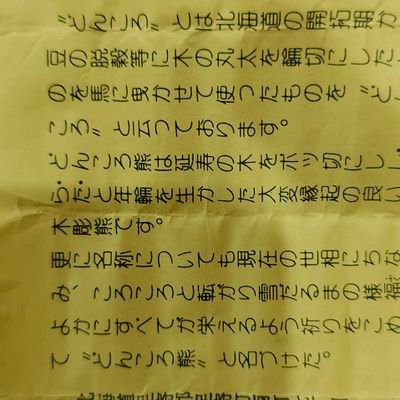 〝どんころ〟とは北海道の開拓期か
豆の脱穀等に木の丸太を輪切にした
のを馬に曳かせて使ったものを〝ど
ころ〟と云っております。
どんころ熊は延寿の木をボッ切にし
らたと年輪を生かした大変縁起の良い
木彫熊です。
更に名称についても現在の世相にちな
み、ころころと転がり雪だるまの様福
よかにすべてが栄えるよう祈りをこめ
て〝どんころ熊〟と名づけた。